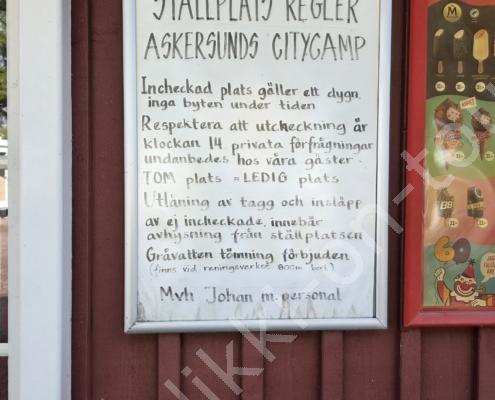 STÄLLPLATS REGLER
ASKERSUNDS CITYCAMP
Incheckad plats gäller ett dygn,
inga byten under tiden
Respektera att utcheckning är
klockan 14, privata förfrågningar
undanbedes hos våra gäster.
TOM plats = LEDIG plats
Utlåning av tagg och insläpp
av ej incheckade, innebär
avhysning från ställplatsen
Gråvatten tömning förbjuden
(finns vid reningsverket 800m bort)
Mvh Johan m. personal